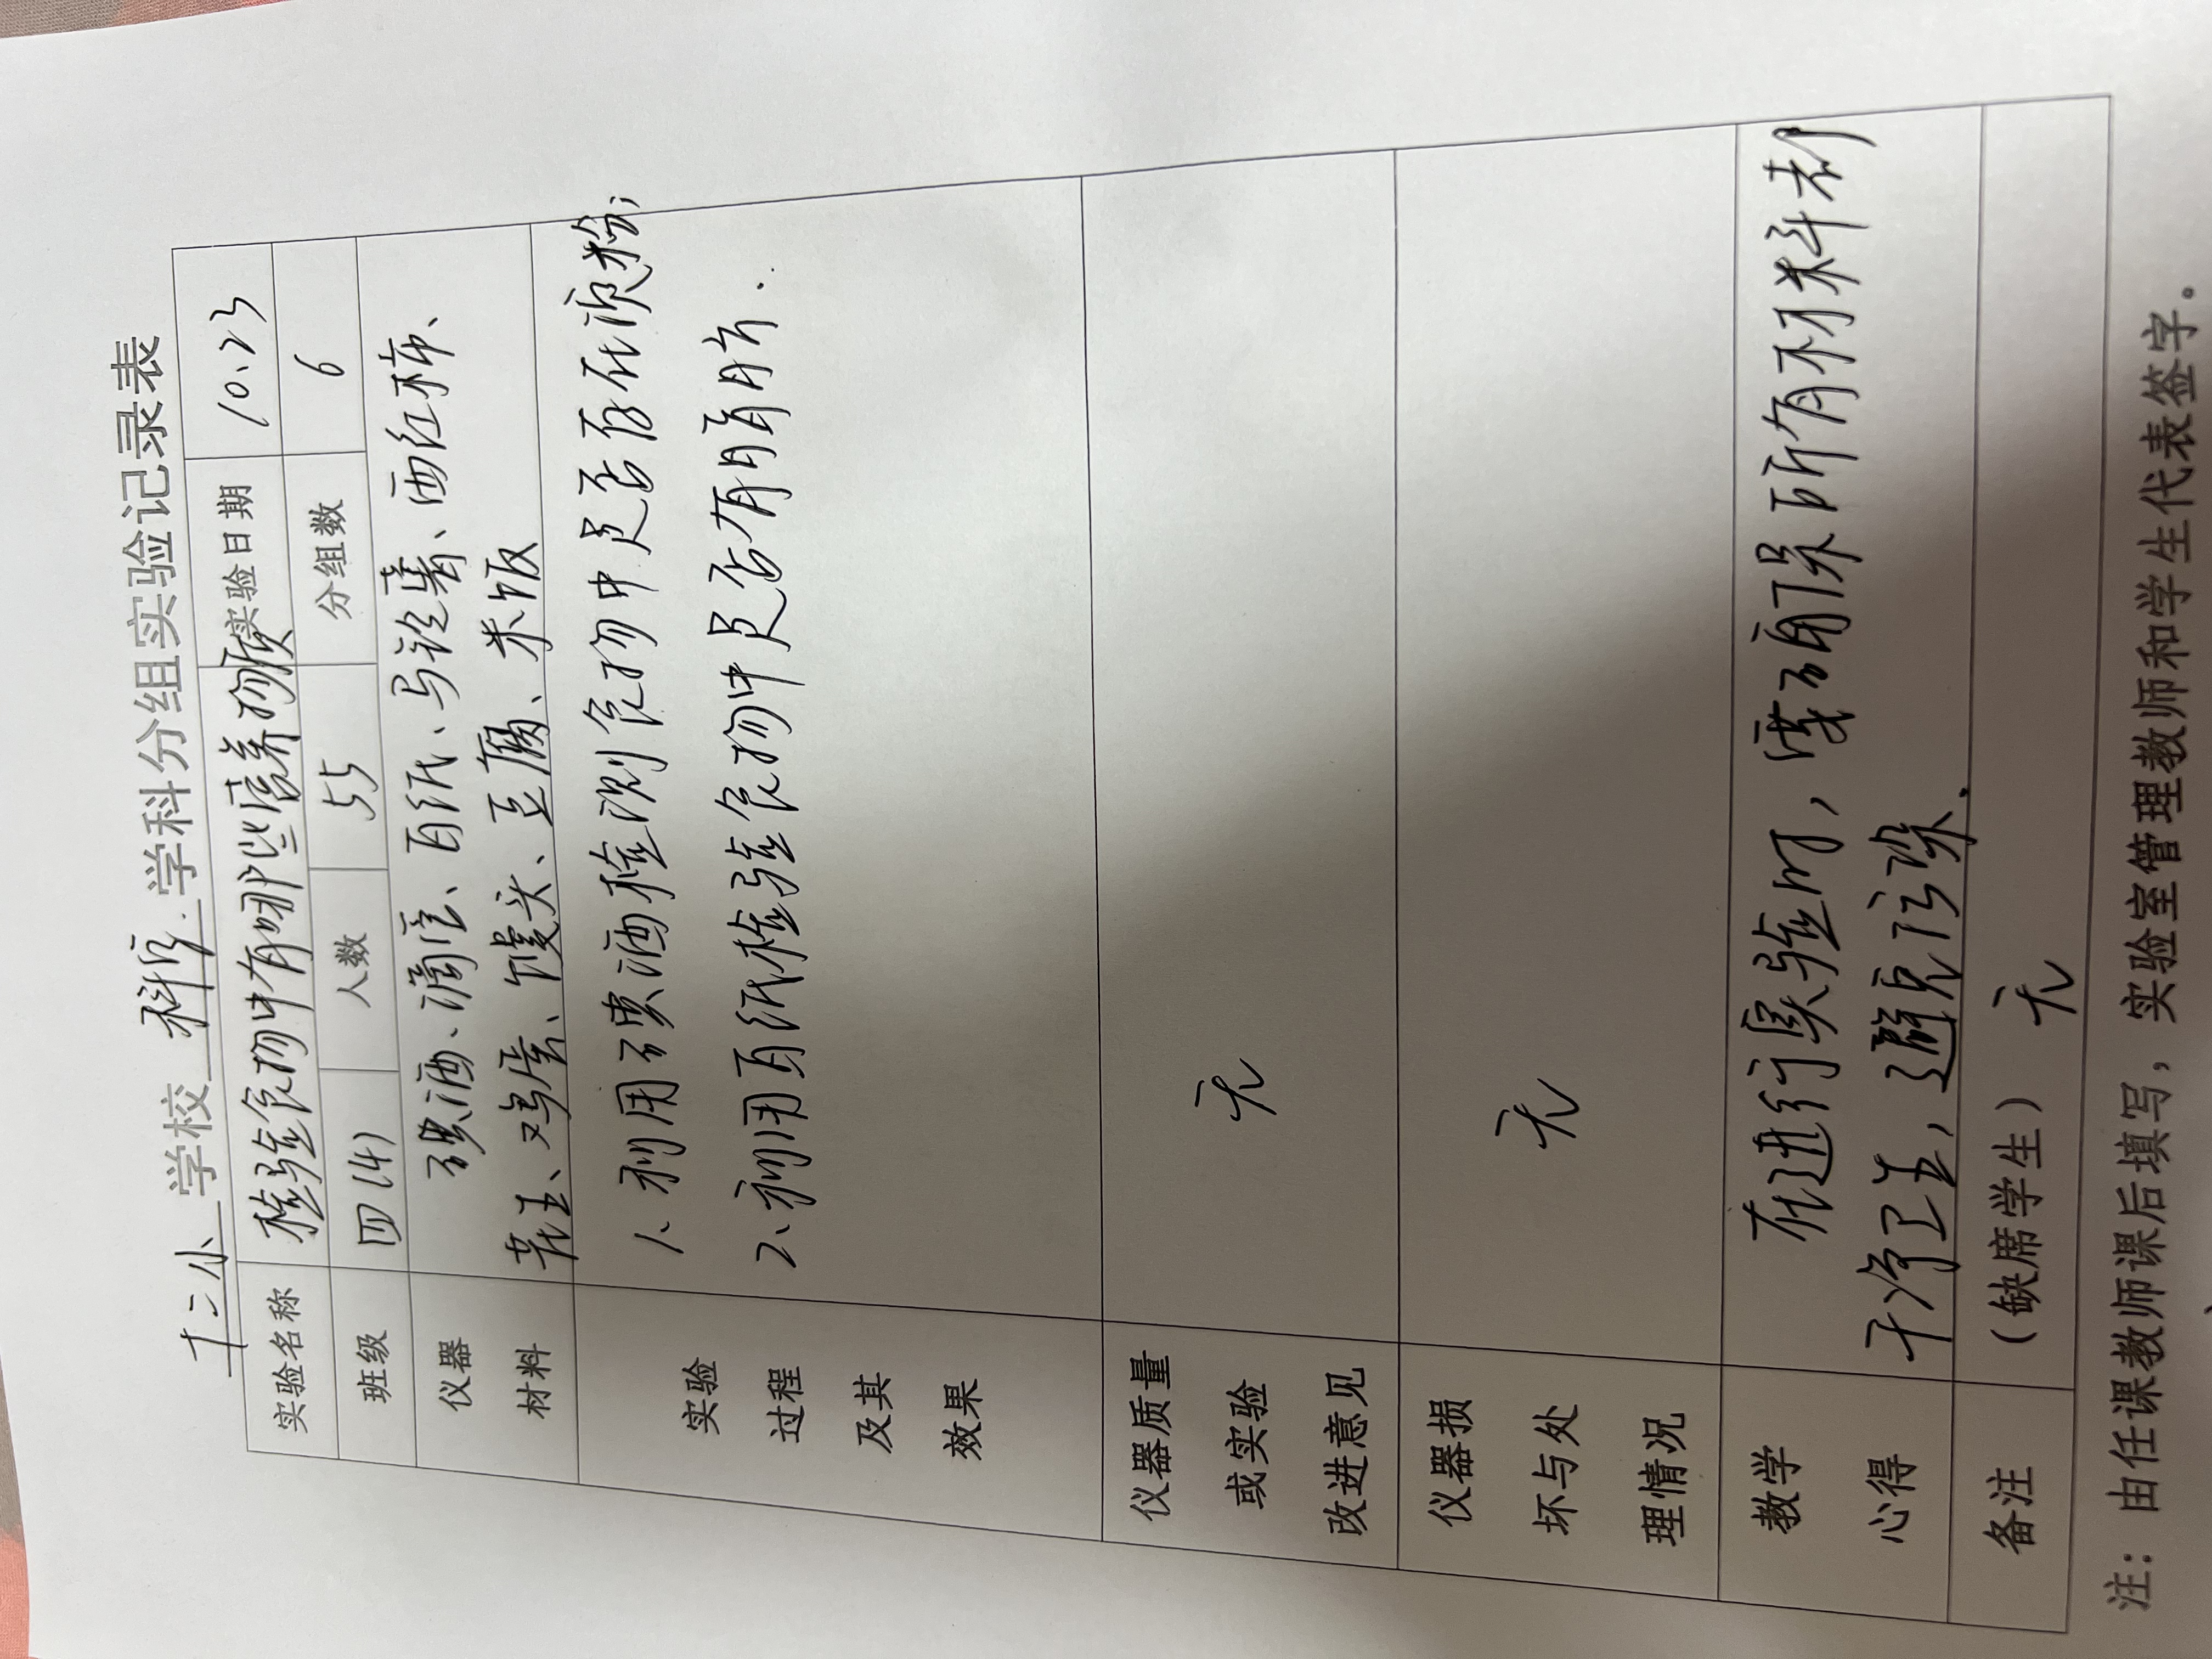 十二小 学校 科学 学科分组实验记录表
实验名称 检验食物中有哪些营养物质 实验日期 10.23
班级 四(4) 人数 55 分组数 6
仪器 碘酒、滴管、白纸、马铃薯、西红柿、
材料 花生、鸡蛋、馒头、豆腐、米饭
实验 1、利用碘酒检测食物中是否存在淀粉;
过程 2、利用白纸检验食物中是否有脂肪.
及其
效果
仪器质量
或实验 无
改进意见
仪器损
坏与处 无
理情况
教学 在进行实验时,要确保所有材料都
心得 干净卫生,避免污染.
备注 (缺席学生) 无
注:由任课教师课后填写,实验室管理教师和学生代表签字。